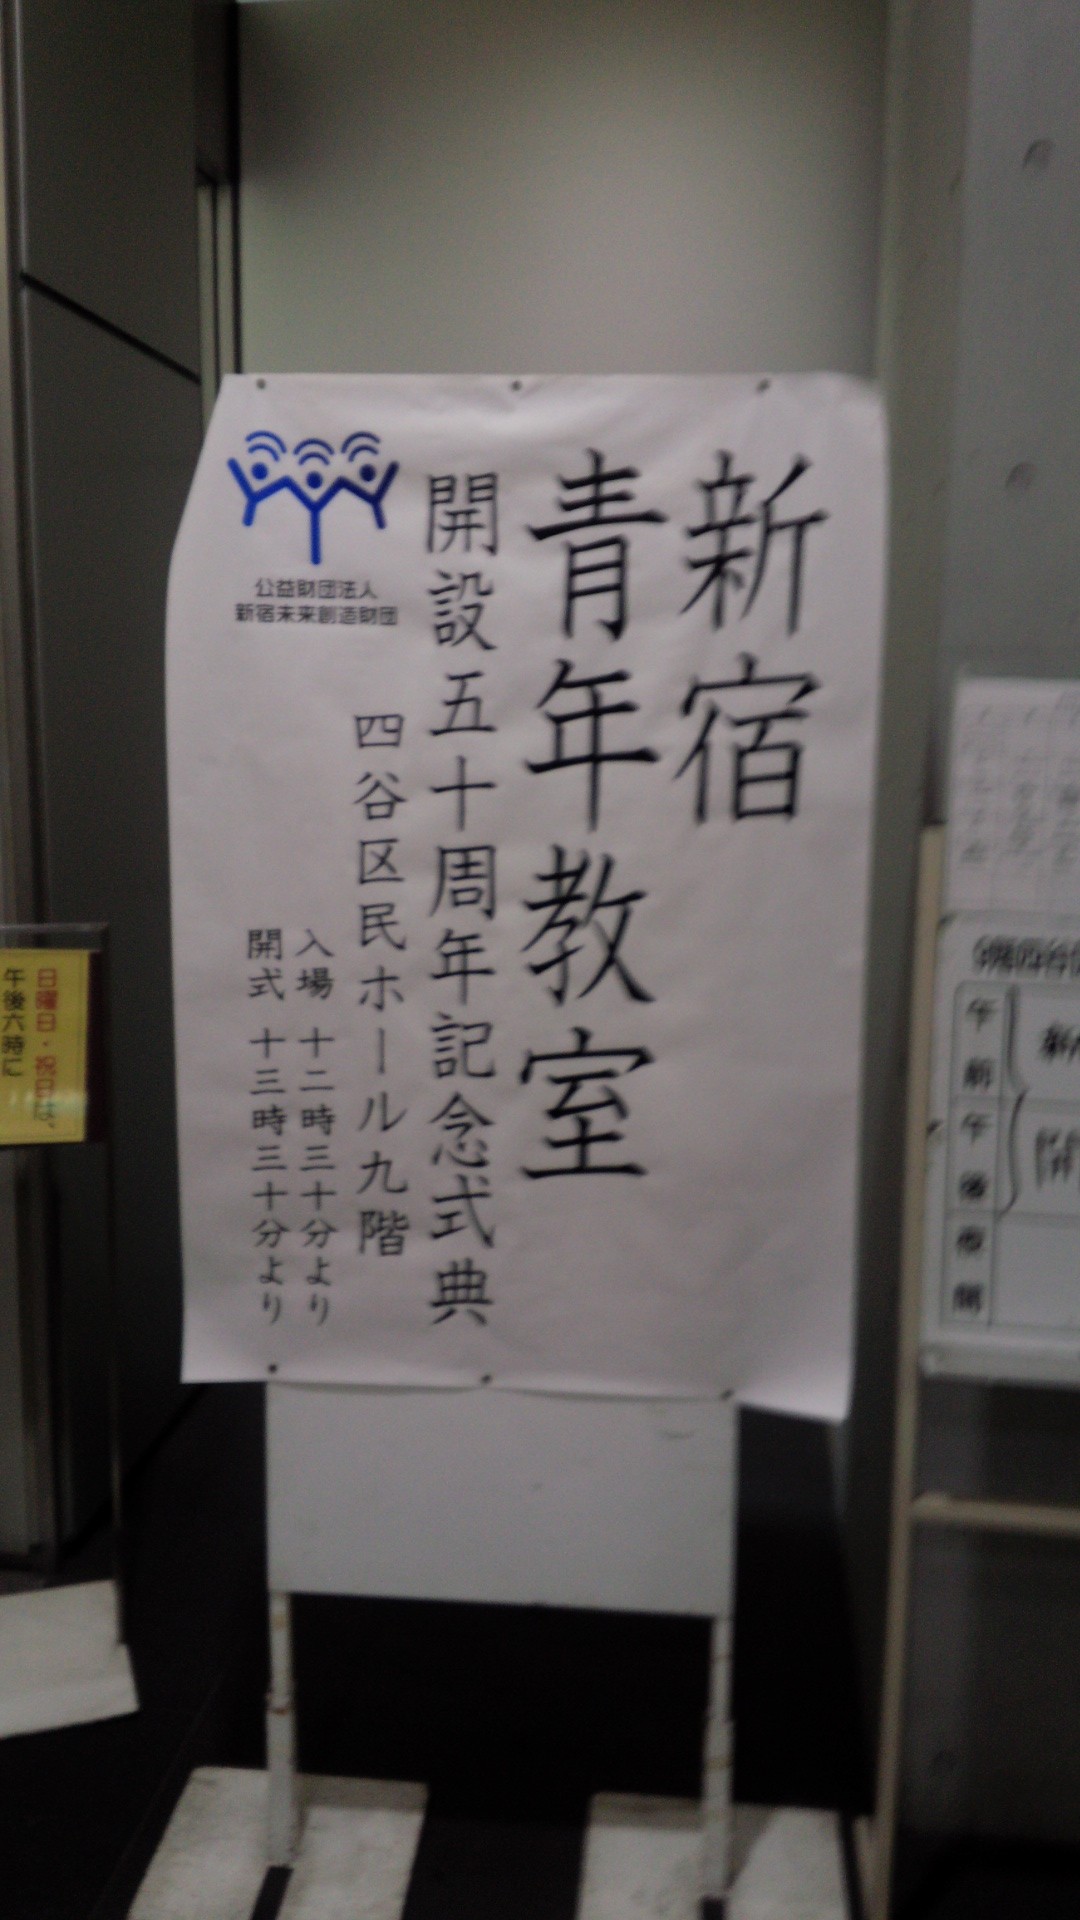 新宿
青年教室
開設五十周年記念式典
四谷区民ホール九階
入場 十二時三十分より
開式 十三時三十分より
公益財団法人
新宿未来創造財団
日曜日・祝日は、
午後六時に
午前
午後
夜間